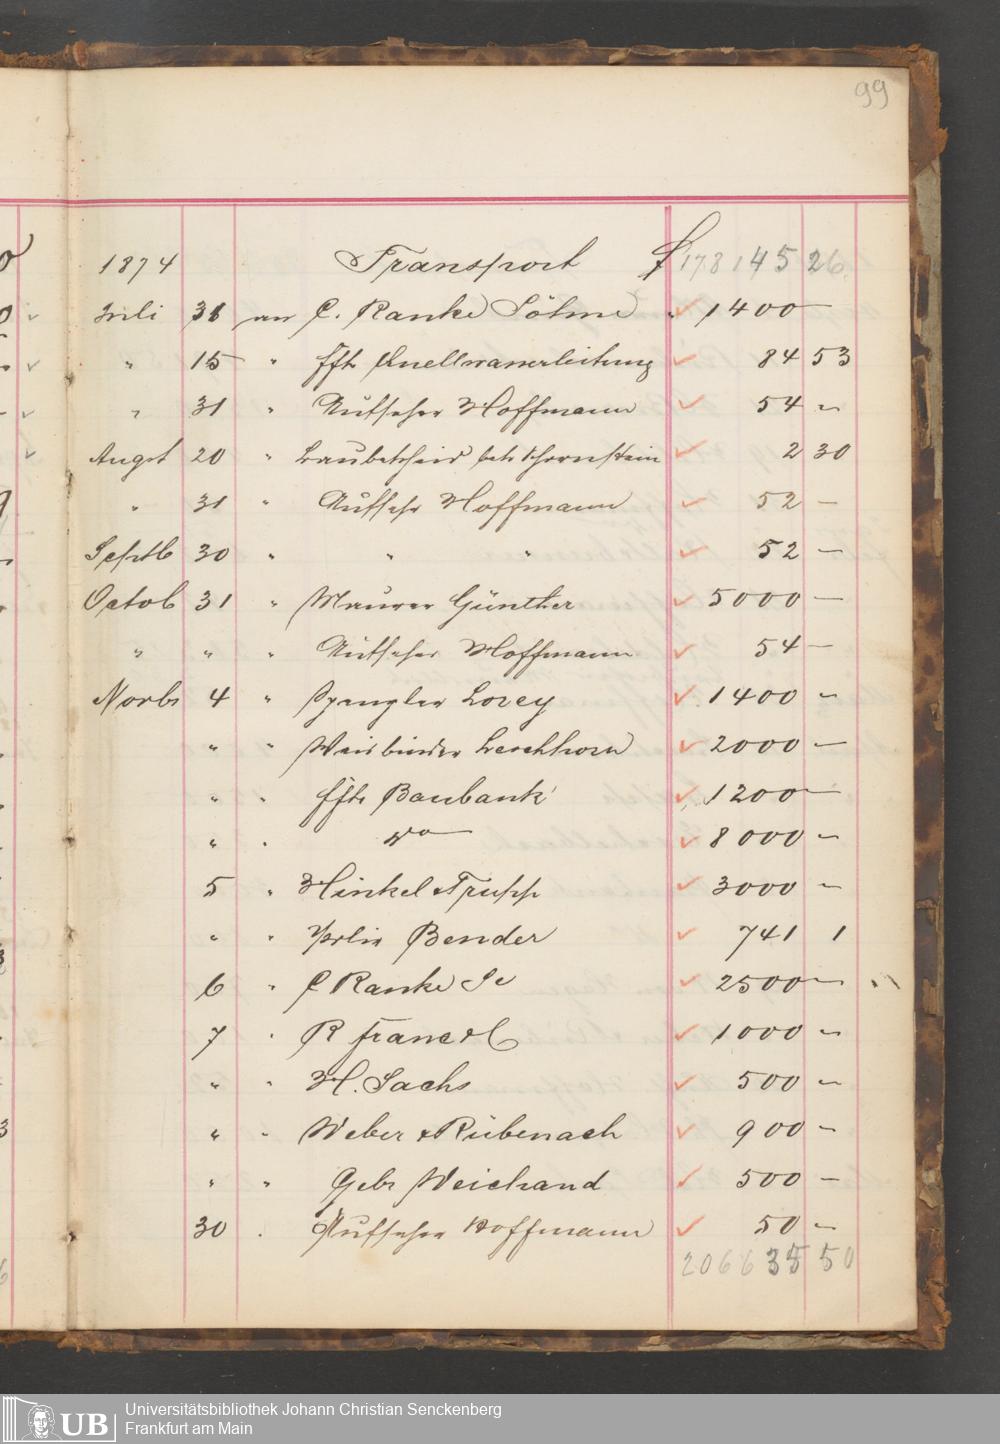 99
1874 Transport f 178145 26
Juli 31 an C. Ranke Söhne " 1400 —
" 15 " Fftr Quellwasserleitung 84 53
" 31 " Aufseher Hoffmann 54 —
Augst 20 " 2 30
" 31 " Aufsehr Hoffmann 52 —
Septb 30 " " " 52 —
Octob 31 " Maurer Günther 5000 —
" " " Aufseher Hoffmann 54 —
Novbr 4 " Spengler Lorey 1400 —
" " Weisbinder Lerchhorn 2000 —
" " Fftr Baubank 1200 —
" " do 8000 —
5 " Hinkel & Trupp 3000 —
" " Bender 741 1
6 " C Ranke Se 2500 —
7 " R 1000 —
" " H. Sachs 500 —
" " Weber & Rübenach 900 —
" " Gebr Weichand 500 —
30 " Aufseher Hoffmann 50 —
206635 50
UB
Universitätsbibliothek Johann Christian Senckenberg
Frankfurt am Main